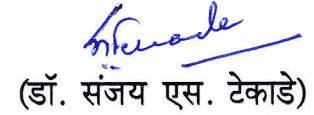 (डॉ. संजय एस. टेकाडे)